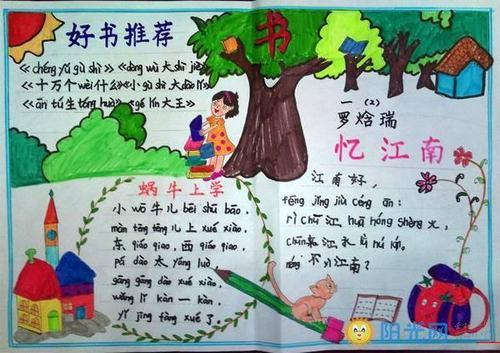 好书推荐
《chéng yǔ gù shì》《dòng wù 大 shì jiè》
《十万个 wèi 什么》《小 gù shì 大 dào lǐ》
《ān tú 生 tóng huà》《gé lín 大王》
书
一（2）
罗焓瑞
忆江南
江南好，
fēng jǐng jiù céng ān：
rì 出江 huā hóng shèng 火，
江水 lǜ
néng 不 yì 江南？
蜗牛上学
小 wō 牛儿 bēi shū bāo，
màn tēng tēng 儿上 xué xiào，
东 qiáo qiao，西 qiáo qiao，
pá dào 太 yáng luò
gāng gāng dào xué xiào，
wǎng lǐ kàn 一 kàn，
yǐ jīng fàng xué 了。
阳光网